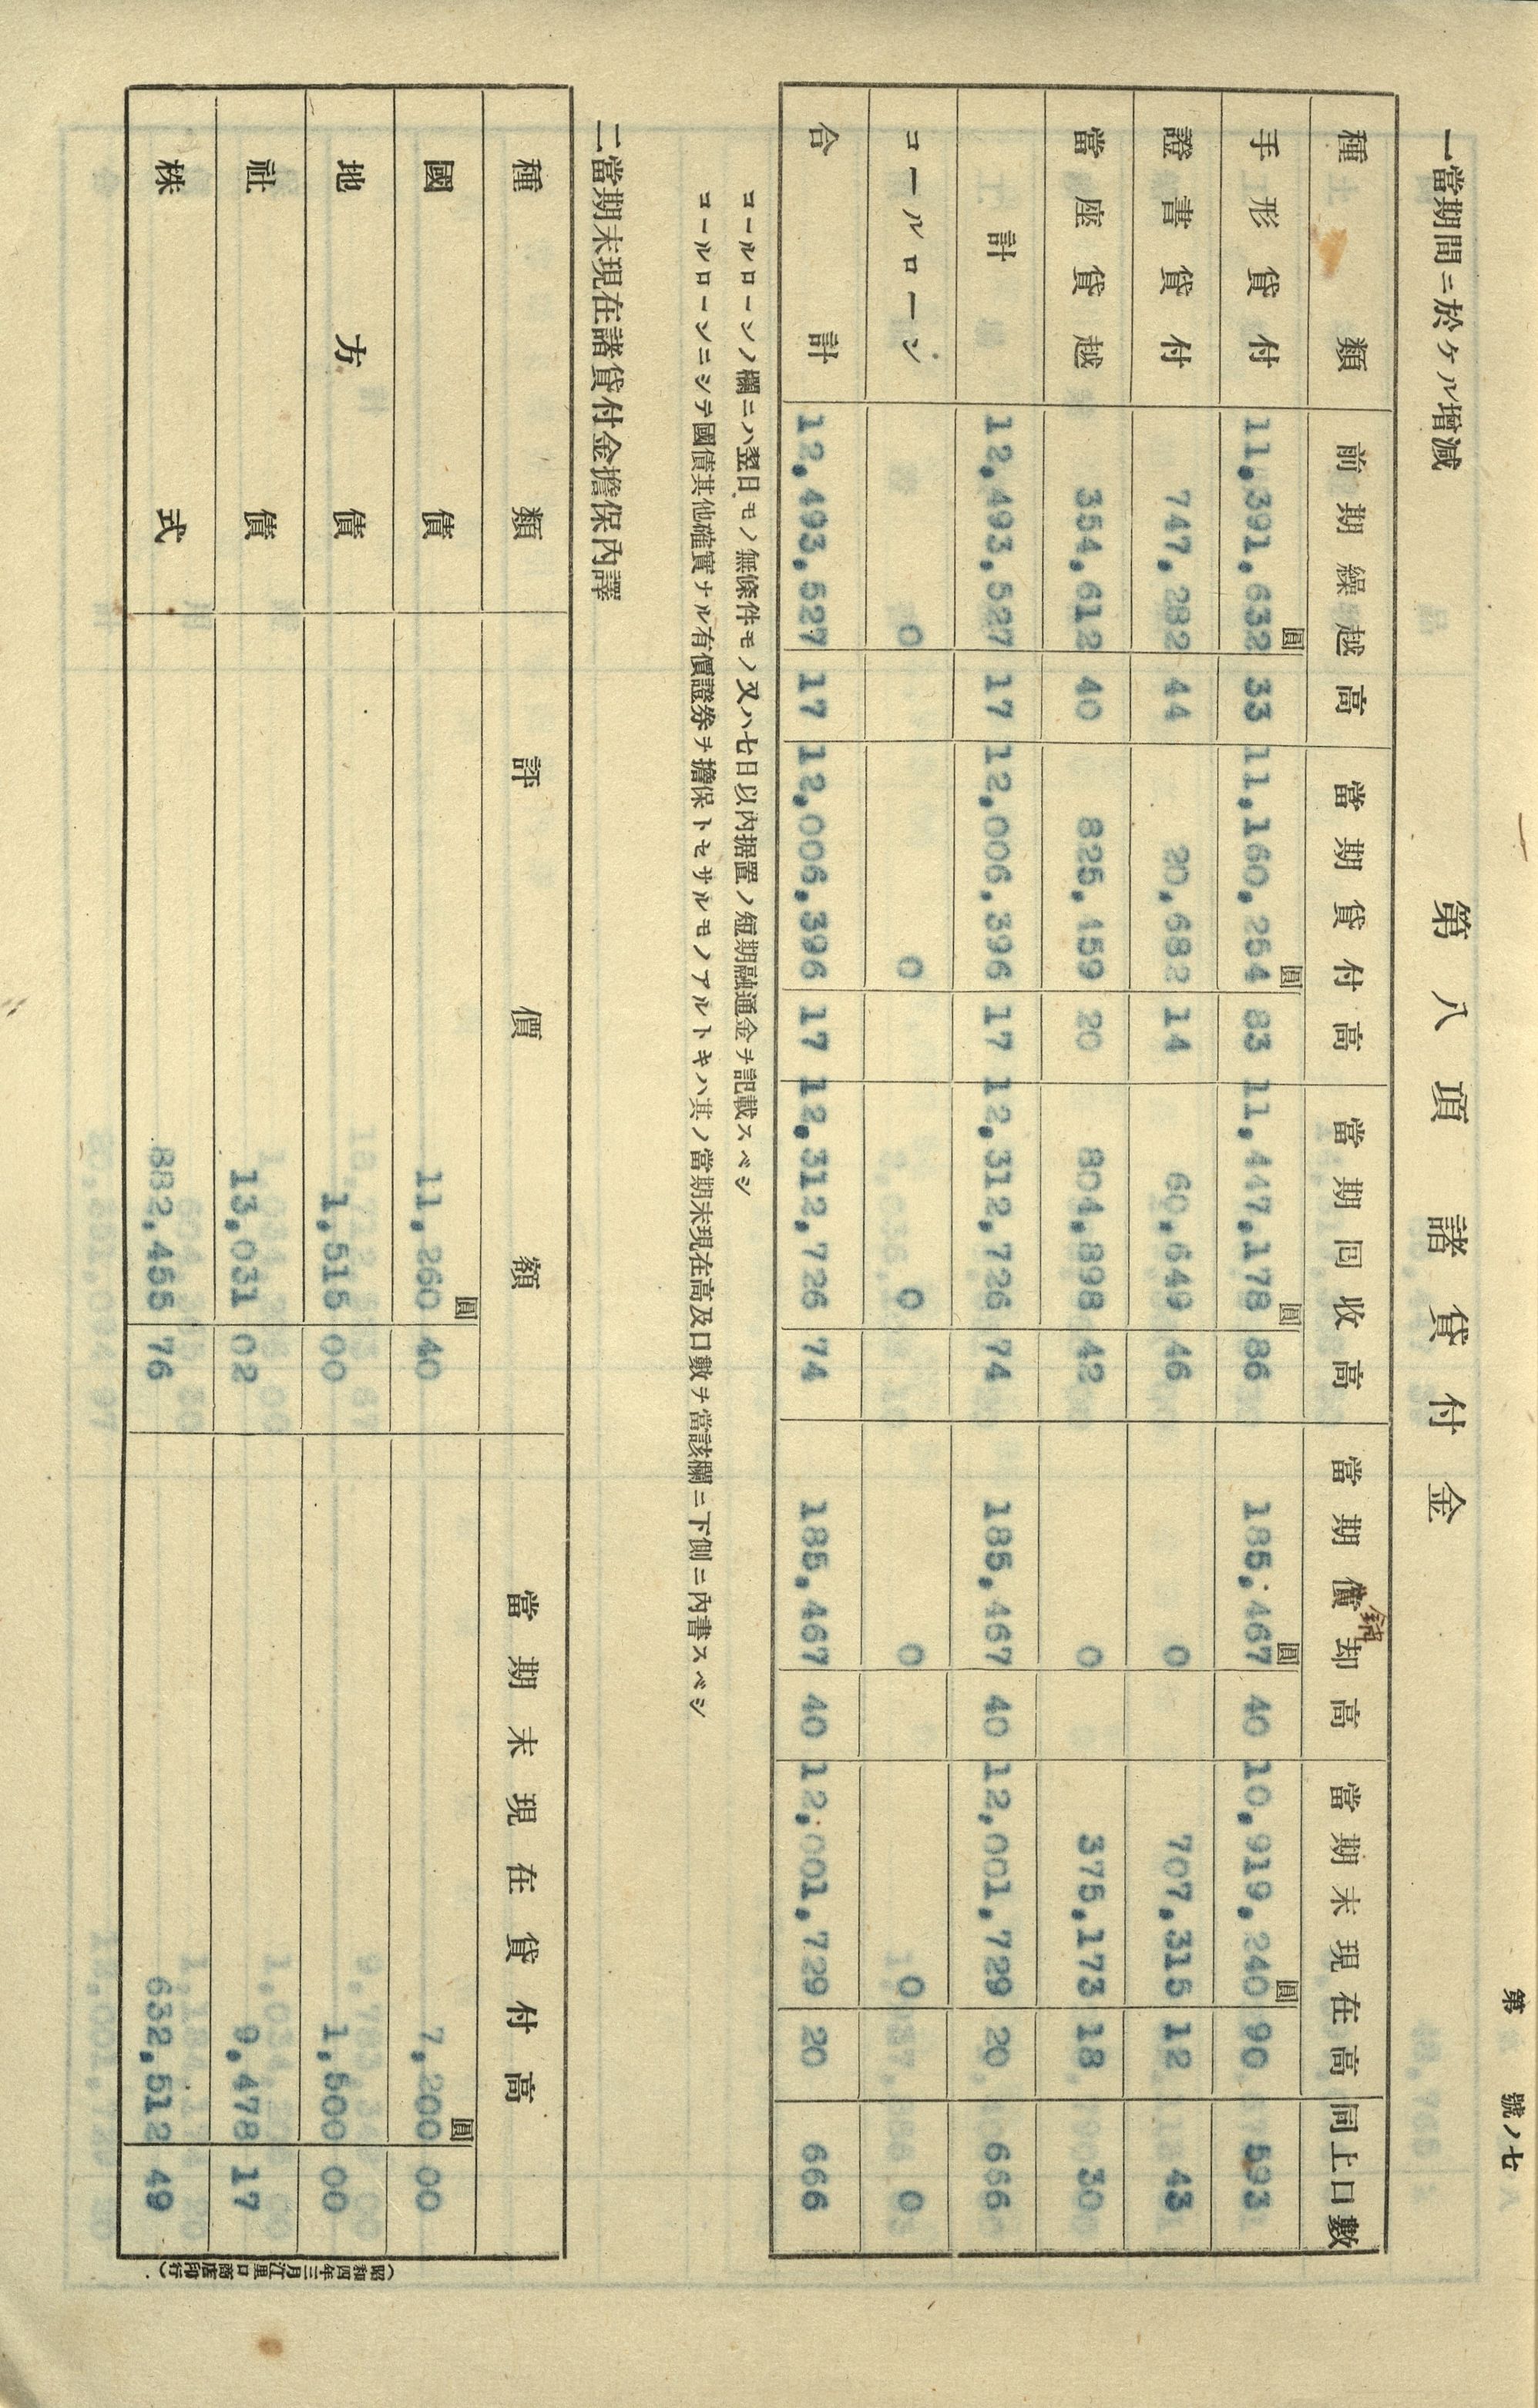 第 號ノ七
第八項 諸貸付金
一當期間ニ於ケル增減
種類 前期繰越高 當期貸付高 當期回收高 當期償却高 當期末現在高 同上口數
銷
手形貸付 11,391,632圓 33 11,160,254圓 83 11,447,178圓 86 185,467圓 40 10,919,240圓 90 593
證書貸付 747,282 44 20,682 14 60,649 46 0 707,315 12 43
當座貸越 354,612 40 825,459 20 804,898 42 0 375,173 18 30
計 12,493,527 17 12,006,396 17 12,312,726 74 185,467 40 12,001,729 20 666
コールローン 0 0 0 0 0 0
合計 12,493,527 17 12,006,396 17 12,312,726 74 185,467 40 12,001,729 20 666
コールローンノ欄ニハ翌日モノ無條件モノ又ハ七日以內据置ノ短期融通金ヲ記載スベシ
コールローンニシテ國債其他確實ナル有價證券ヲ擔保トセサルモノアルトキハ其ノ當期末現在高及口數ヲ當該欄ニ下側ニ內書スベシ
二當期末現在諸貸付金擔保內譯
種類 評價額 當期末現在貸付高
國債 11,260圓 40 7,200圓 00
地方債 1,515 00 1,500 00
社債 13,031 02 9,478 17
株式 882,455 76 632,512 49
(昭和四年三月江里口商店印行)